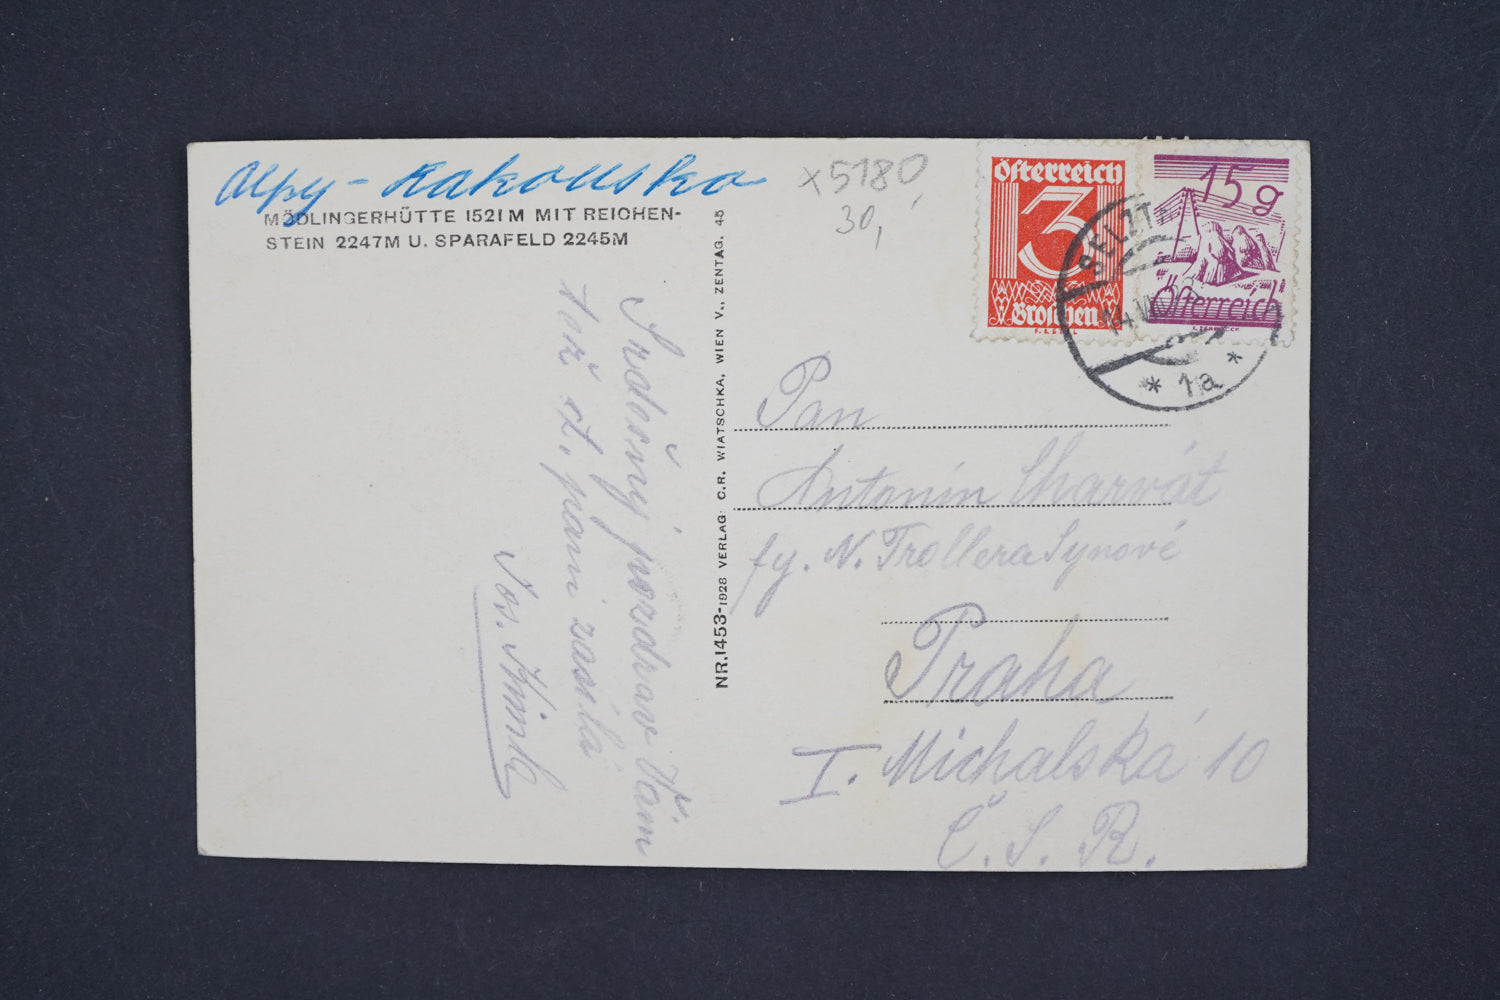 Alpy - Rakousko
MÖDLINGERHÜTTE 1521M MIT REICHEN-
STEIN 2247M U. SPARAFELD 2245M
x5180,
30,
Österreich
3
Groschen
15g
Österreich
SELZT
14
* 1a *
NR. 1453-1928 VERLAG: C.R. WIATSCHKA, WIEN V., ZENTAG. 45
Srdečný pozdrav Vám
též ct. paní zasílá
Jos.
Pan
Antonín Charvát
fy. N. Trollera Synové
Praha
I. Michalská 10
Č. S. R.